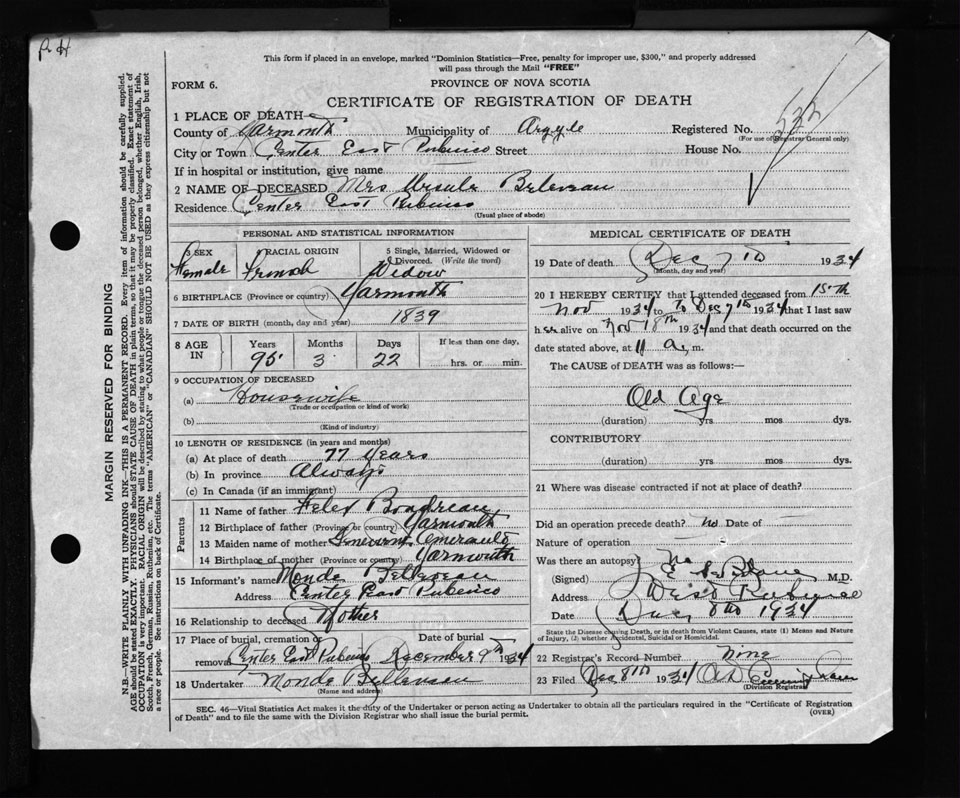 P. H
This form if placed in an envelope, marked "Dominion Statistics—Free, penalty for improper use, $300," and properly addressed
will pass through the Mail "FREE"
FORM 6.
PROVINCE OF NOVA SCOTIA
CERTIFICATE OF REGISTRATION OF DEATH
1 PLACE OF DEATH—
County of Yarmouth Municipality of Argyle Registered No.
(For use of Registrar General only)
City or Town Center East Pubnico Street House No.
If in hospital or institution, give name
2 NAME OF DECEASED Mrs Ursule
Residence Center East Pubnico
(Usual place of abode)
PERSONAL AND STATISTICAL INFORMATION
3 SEX Female
RACIAL ORIGIN French
5 Single, Married, Widowed or Divorced. (Write the word) Widow
6 BIRTHPLACE (Province or country) Yarmouth
7 DATE OF BIRTH (month, day and year) 1839
8 AGE IN Years 95 Months 3 Days 22 If less than one day, hrs. or min.
9 OCCUPATION OF DECEASED
(a) Housewife
(Trade or occupation or kind of work)
(b)
(Kind of industry)
10 LENGTH OF RESIDENCE (in years and months)
(a) At place of death 77 years
(b) In province Always
(c) In Canada (if an immigrant)
Parents
11 Name of father Felex
12 Birthplace of father (Province or country) Yarmouth
13 Maiden name of mother
14 Birthplace of mother (Province or country) Yarmouth
15 Informant's name Monde
Address Center East Pubnico
16 Relationship to deceased Mother
17 Place of burial, cremation or removal Center East Pubnico Date of burial December 9th 1934
18 Undertaker Monde
(Name and address)
MEDICAL CERTIFICATE OF DEATH
19 Date of death Dec 7th 1934
(Month, day and year)
20 I HEREBY CERTIFY that I attended deceased from 15th
Nov 1934 to Dec 7th 1934 that I last saw
h er alive on Nov 18th 1934 and that death occurred on the
date stated above, at 11 a. m.
The CAUSE of DEATH was as follows:—
Old Age
(duration) yrs mos dys.
CONTRIBUTORY
(duration) yrs mos dys.
21 Where was disease contracted if not at place of death?
Did an operation precede death? no Date of —
Nature of operation —
Was there an autopsy? No
(Signed) M.D.
Address West Pubnico
Date Dec 8th 1934
State the Disease causing Death, or in death from Violent Causes, state (1) Means and Nature
of Injury, (2) whether Accidental, Suicidal or Homicidal.
22 Registrar's Record Number Nine
23 Filed Dec 8th 1934
(Division Registrar)
SEC. 46—Vital Statistics Act makes it the duty of the Undertaker or person acting as Undertaker to obtain all the particulars required in the "Certificate of Registration
of Death" and to file the same with the Division Registrar who shall issue the burial permit.
(OVER)
MARGIN RESERVED FOR BINDING
N.B.—WRITE PLAINLY WITH UNFADING INK—THIS IS A PERMANENT RECORD. Every item of information should be carefully supplied.
AGE should be stated EXACTLY. PHYSICIANS should STATE CAUSE OF DEATH in plain terms, so that it may be properly classified. Exact statement of
OCCUPATION is very important. RACIAL ORIGIN will be described by stating to what people or tongue the deceased person belonged, whether English, Irish,
Scotch, French, German, Russian, Ruthenian, etc. The terms "AMERICAN" or "CANADIAN" SHOULD NOT BE USED as they express citizenship but not
a race or people. See instructions on back of Certificate.